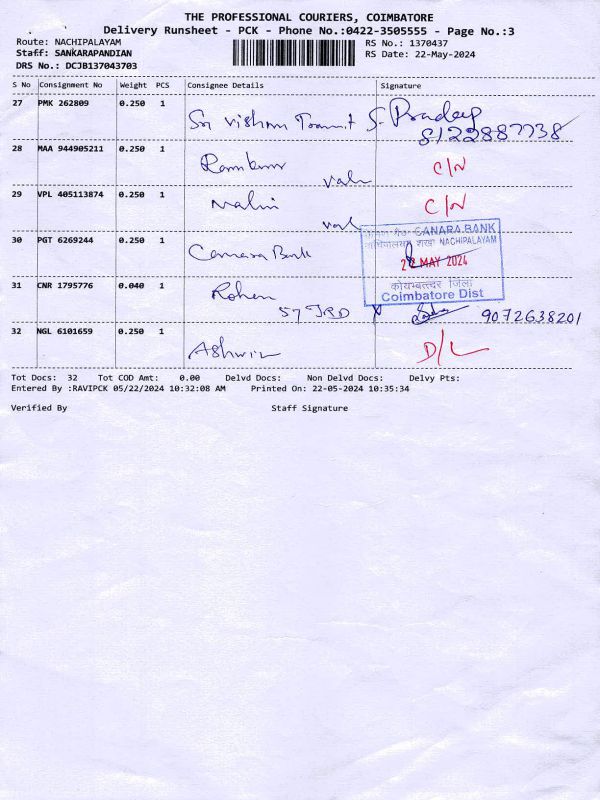 THE PROFESSIONAL COURIERS, COIMBATORE
Delivery Runsheet - PCK - Phone No.:0422-3505555 - Page No.:3
Route: NACHIPALAYAM
RS No.: 1370437
Staff: SANKARAPANDIAN
RS Date: 22-May-2024
DRS No.: DCJB137043703
S No Consignment No Weight PCS Consignee Details Signature
27 PMK 262809 0.250 1 Sri Vishnu Transit S. Pradeep
8122887738
28 MAA 944905211 0.250 1 Ramkumar C/N
29 VPL 405113874 0.250 1 Malini C/N
30 PGT 6269244 0.250 1 Canara Bank
CANARA BANK
NACHIPALAYAM
22 MAY 2024
कोयम्बत्तूर जिला
Coimbatore Dist
31 CNR 1795776 0.040 1 Rohen
9072638201
32 NGL 6101659 0.250 1 Ashwin D/L
Tot Docs: 32 Tot COD Amt: 0.00 Delvd Docs: Non Delvd Docs: Delvy Pts:
Entered By :RAVIPCK 05/22/2024 10:32:08 AM Printed On: 22-05-2024 10:35:34
Verified By Staff Signature